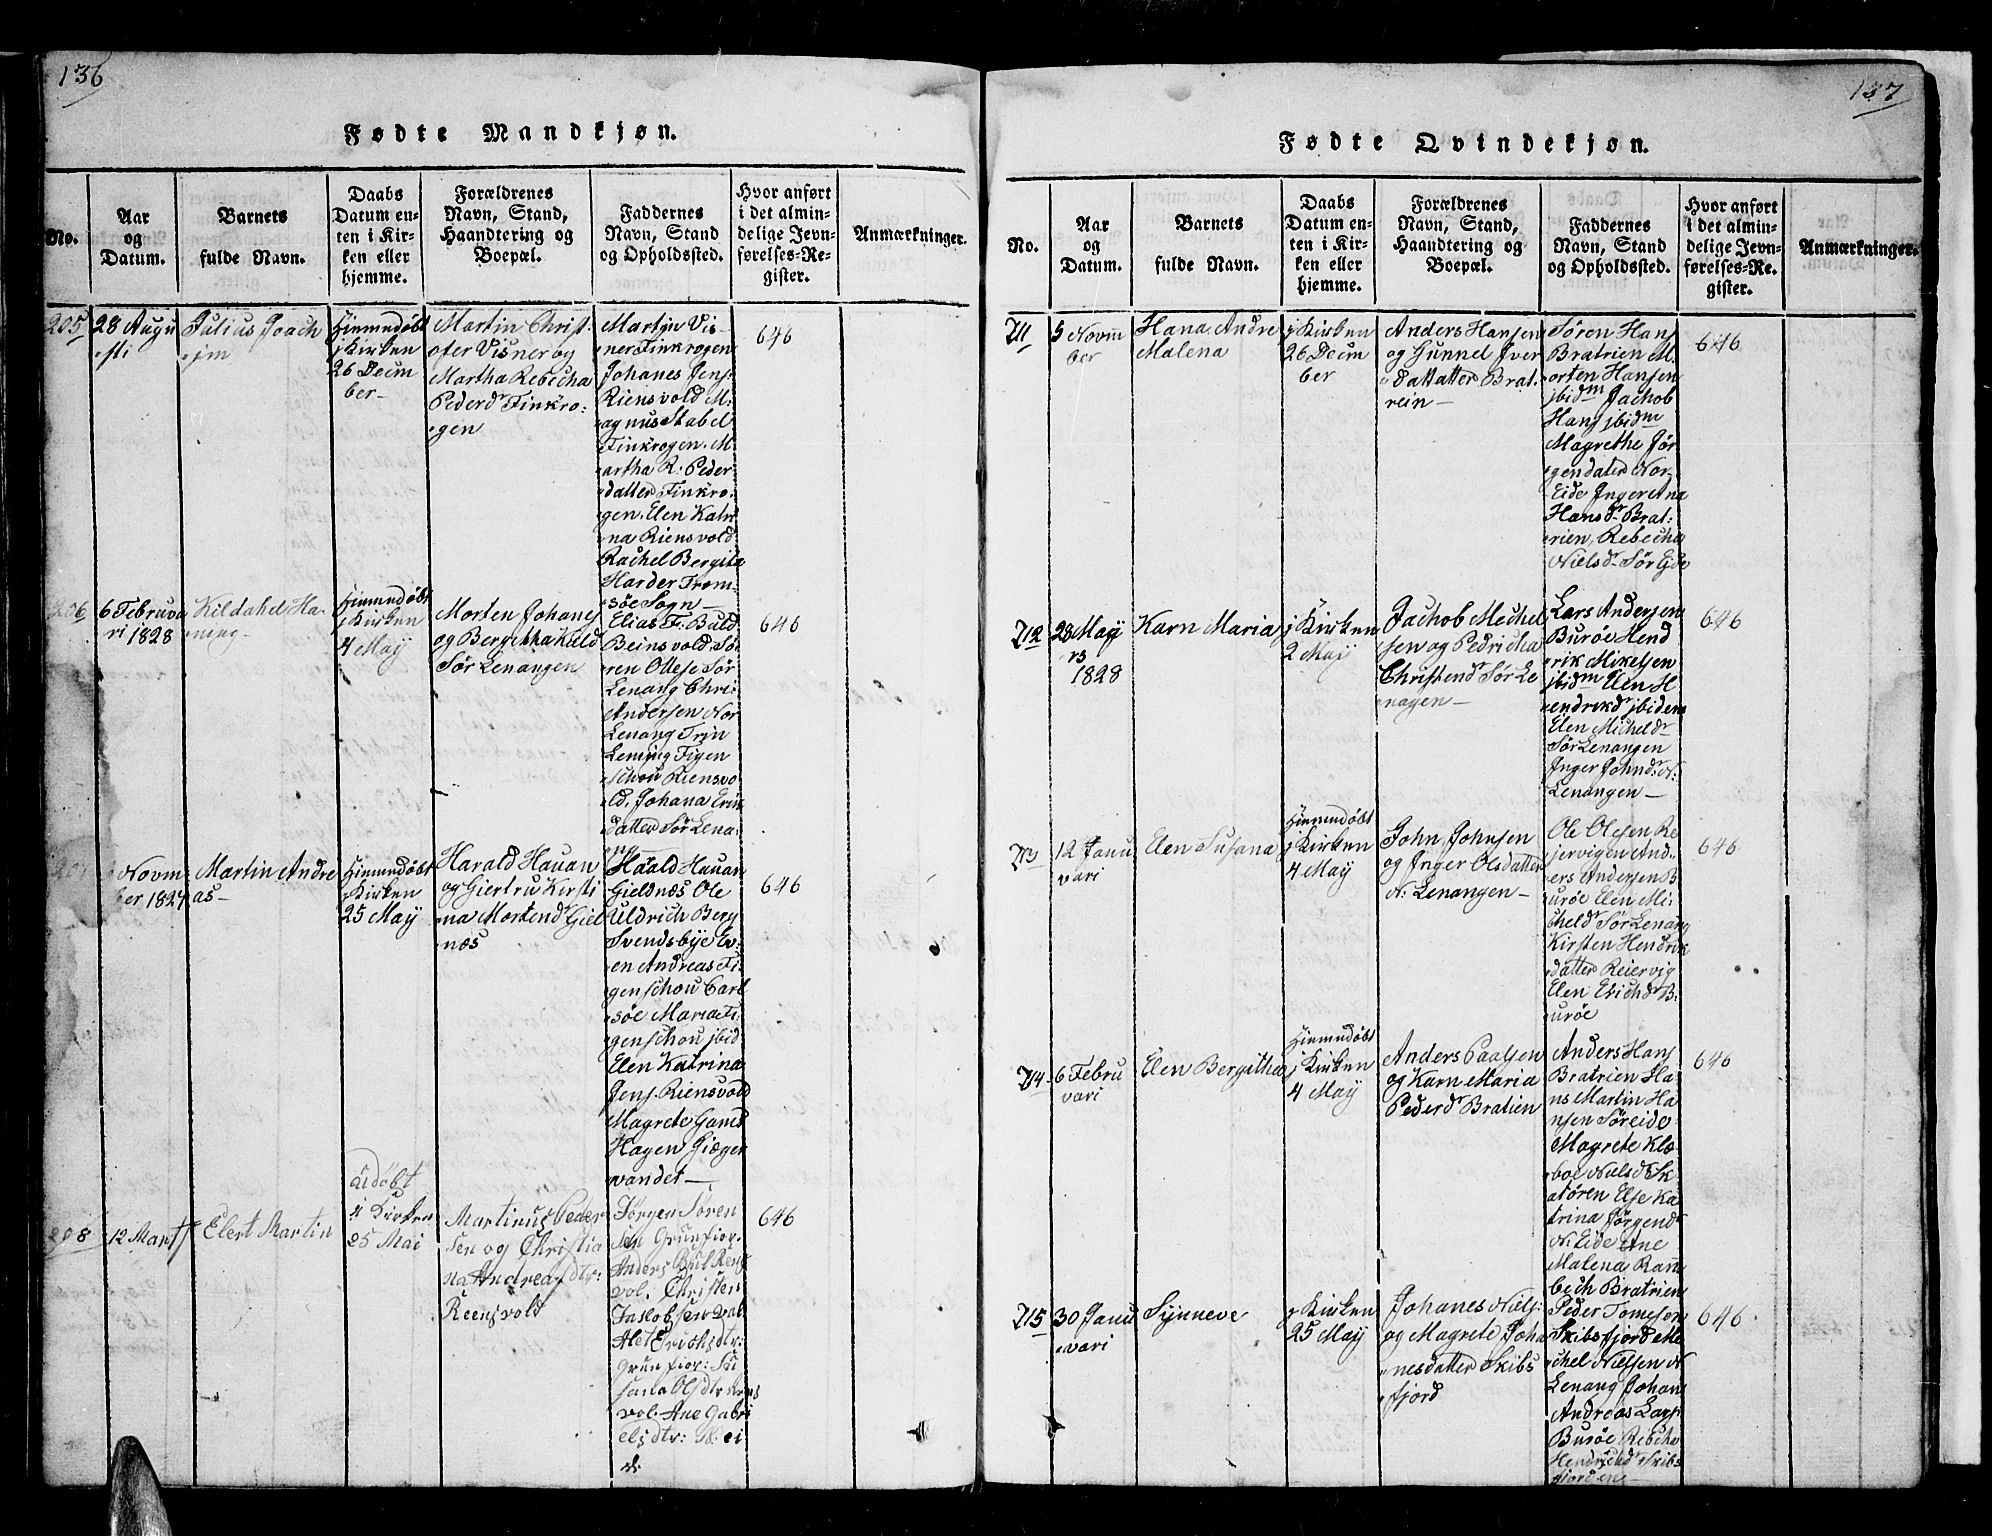 136
Fødte Mandkjøn.
No.
Aar
og
Datum.
Barnets
fulde Navn.
Daabs
Datum en-
ten i Kir-
ken eller
hjemme.
Forældrenes
Navn, Stand,
Haandtering og
Boepæl.
Faddernes
Navn, Stand
og Opholdssted.
Hvor anført
i det almin-
delige Jevn-
førelses-Re-
gister.
Anmærkninger.
205
28 Augu
sti
Julius Joach
jm
Hiemmdøbt
j Kirken
26 Decm
ber
Martin Christ:
ofer Visner og
Martha Rebecha
Pederd Finkro:
gen
Martin Vis
ner Finkrogen
Johanes Jens:
Riensvold M:
agnus Stabel
Finkrogen. M:
artha R: Peder
datter Finkro:
gen. Elen Katri
na Riensvold
Rachel Bergita
Harder Trom
søe Sogn
646
206
6 Februva
ri 1828
Kildahel Ha
ning
Hiemmdøbt
j Kirken
4 Maÿ
Morten Johanes
og Bergitha Kield
Sør Lenangen
Elias F: Buld
Reinsvold Sø
ren Olese Sør
Lenang Chri
Andersen Nor
Lenang Trin
Leming Figen
schou Riensvo
ld. Johana Erik
datter Sør Lena
ng
646
Novm
ber 1827
Martin Andre
as
Hiemmdøbt
j Kirken
25 Maÿ
Harald Hauan
og Giertru Kirsti
na Mortend Giel
næs
Haald Hauan
Gieldnæs Ole
Uldrich Berg
Svendsbye Ev:
en Andreas Fi
genschou Carl
søe Maria Fi
genschou jbid
Elen Katrina
Jens. Riensvold
Magrete Gams
Hagen Giæger
vandet
646
208
12 Marts
Elert Martin
døbt
i Kirken
25 Mai
Martinus Peder
sen og Christia
na Andreasdtr:
Reensvold
Jørgen Søren
sen Grunfior.
Anders Bul Rens
vol. Christen
Jaskobsen
Alet Erichsdtr:
Grunfior: Su
sana Olsdtr Rens
vol. Ane Gabri
elsdtr: N: ei
d.
646
137
Fødte Qvindekjøn.
No.
Aar
og
Datum.
Barnets
fulde Navn.
Daabs
Datum en-
ten i Kir-
ken eller
hjemme.
Forældrenes
Navn, Stand,
Haandtering og
Boepæl.
Faddernes
Navn, Stand
og Opholdssted.
Hvor anført
i det almin-
delige Jevn-
førelses-Re-
gister.
Anmærkninger.
211
5 Novm
ber
Hana Andre
Malena
j Kirken
26 Decm
ber
Anders Hansen
og Gunnel Jver
datatter Brat:
rein
Søren Hans
Bratrien M:
orten Hansen
jbidm Jachob
Hans jbidm
Magrethe Jør
gendater Nor
Eide Inger Ana
Hansdr Brat:
rien, Rebecha
Nielsdr Sør Eide
646
212
28 May
rs
1828
Karn Maria
j Kirken
2 Maÿ
Jachob Mechel
sen og Pedricha
Christend Sør Le
nagen
Lars Andersen
Burøe Hend
rik Mikelsen
jbidm Elen H
endrikd jbidem
Elen Micheldr
Sør Lenangen
Inger Johnd: N:
Lenangen
646
213
12 Janu
vari
Elen Susana
Hiemmdøbt
j Kirken
4 Maÿ
John Johnsen
og Inger Olsdatter
N: Lenangen
Ole Olesen Re
jervigen And
ers Andersen B
urøe Elen Mi
cheld Sør Lenang
Kirsten Hendrik
datter Reiervig
Elen Erichd B:
urøe
646
214
6 Febru
vari
Elen Bergitha
Hiemmdøbt
j Kirken
4 Maÿ
Anders Paalsen
og Karn Maria
Pederd Bratien
Anders Hans
Bratrien Ha
ns Martin Ha
nsen Søreide
Magrete Klæ
boe Nielsd Sk
atøren Else Ka
trina Jørgend
N: Eide Ane
Malena Ram
bech Bratrien
646
215
30 Janu
vari
Sÿnneve
j Kirken
25 Maÿ
Johanes Niels:
og Magrete Joha
nesdatter Skibs
fjord
Peder Tomesen
Skibsfjord Me
chel Nielsen N
Lenang Johans
Andreas Lars
Burøe Rebcha
Hendrichd Skibs
fjorden
646